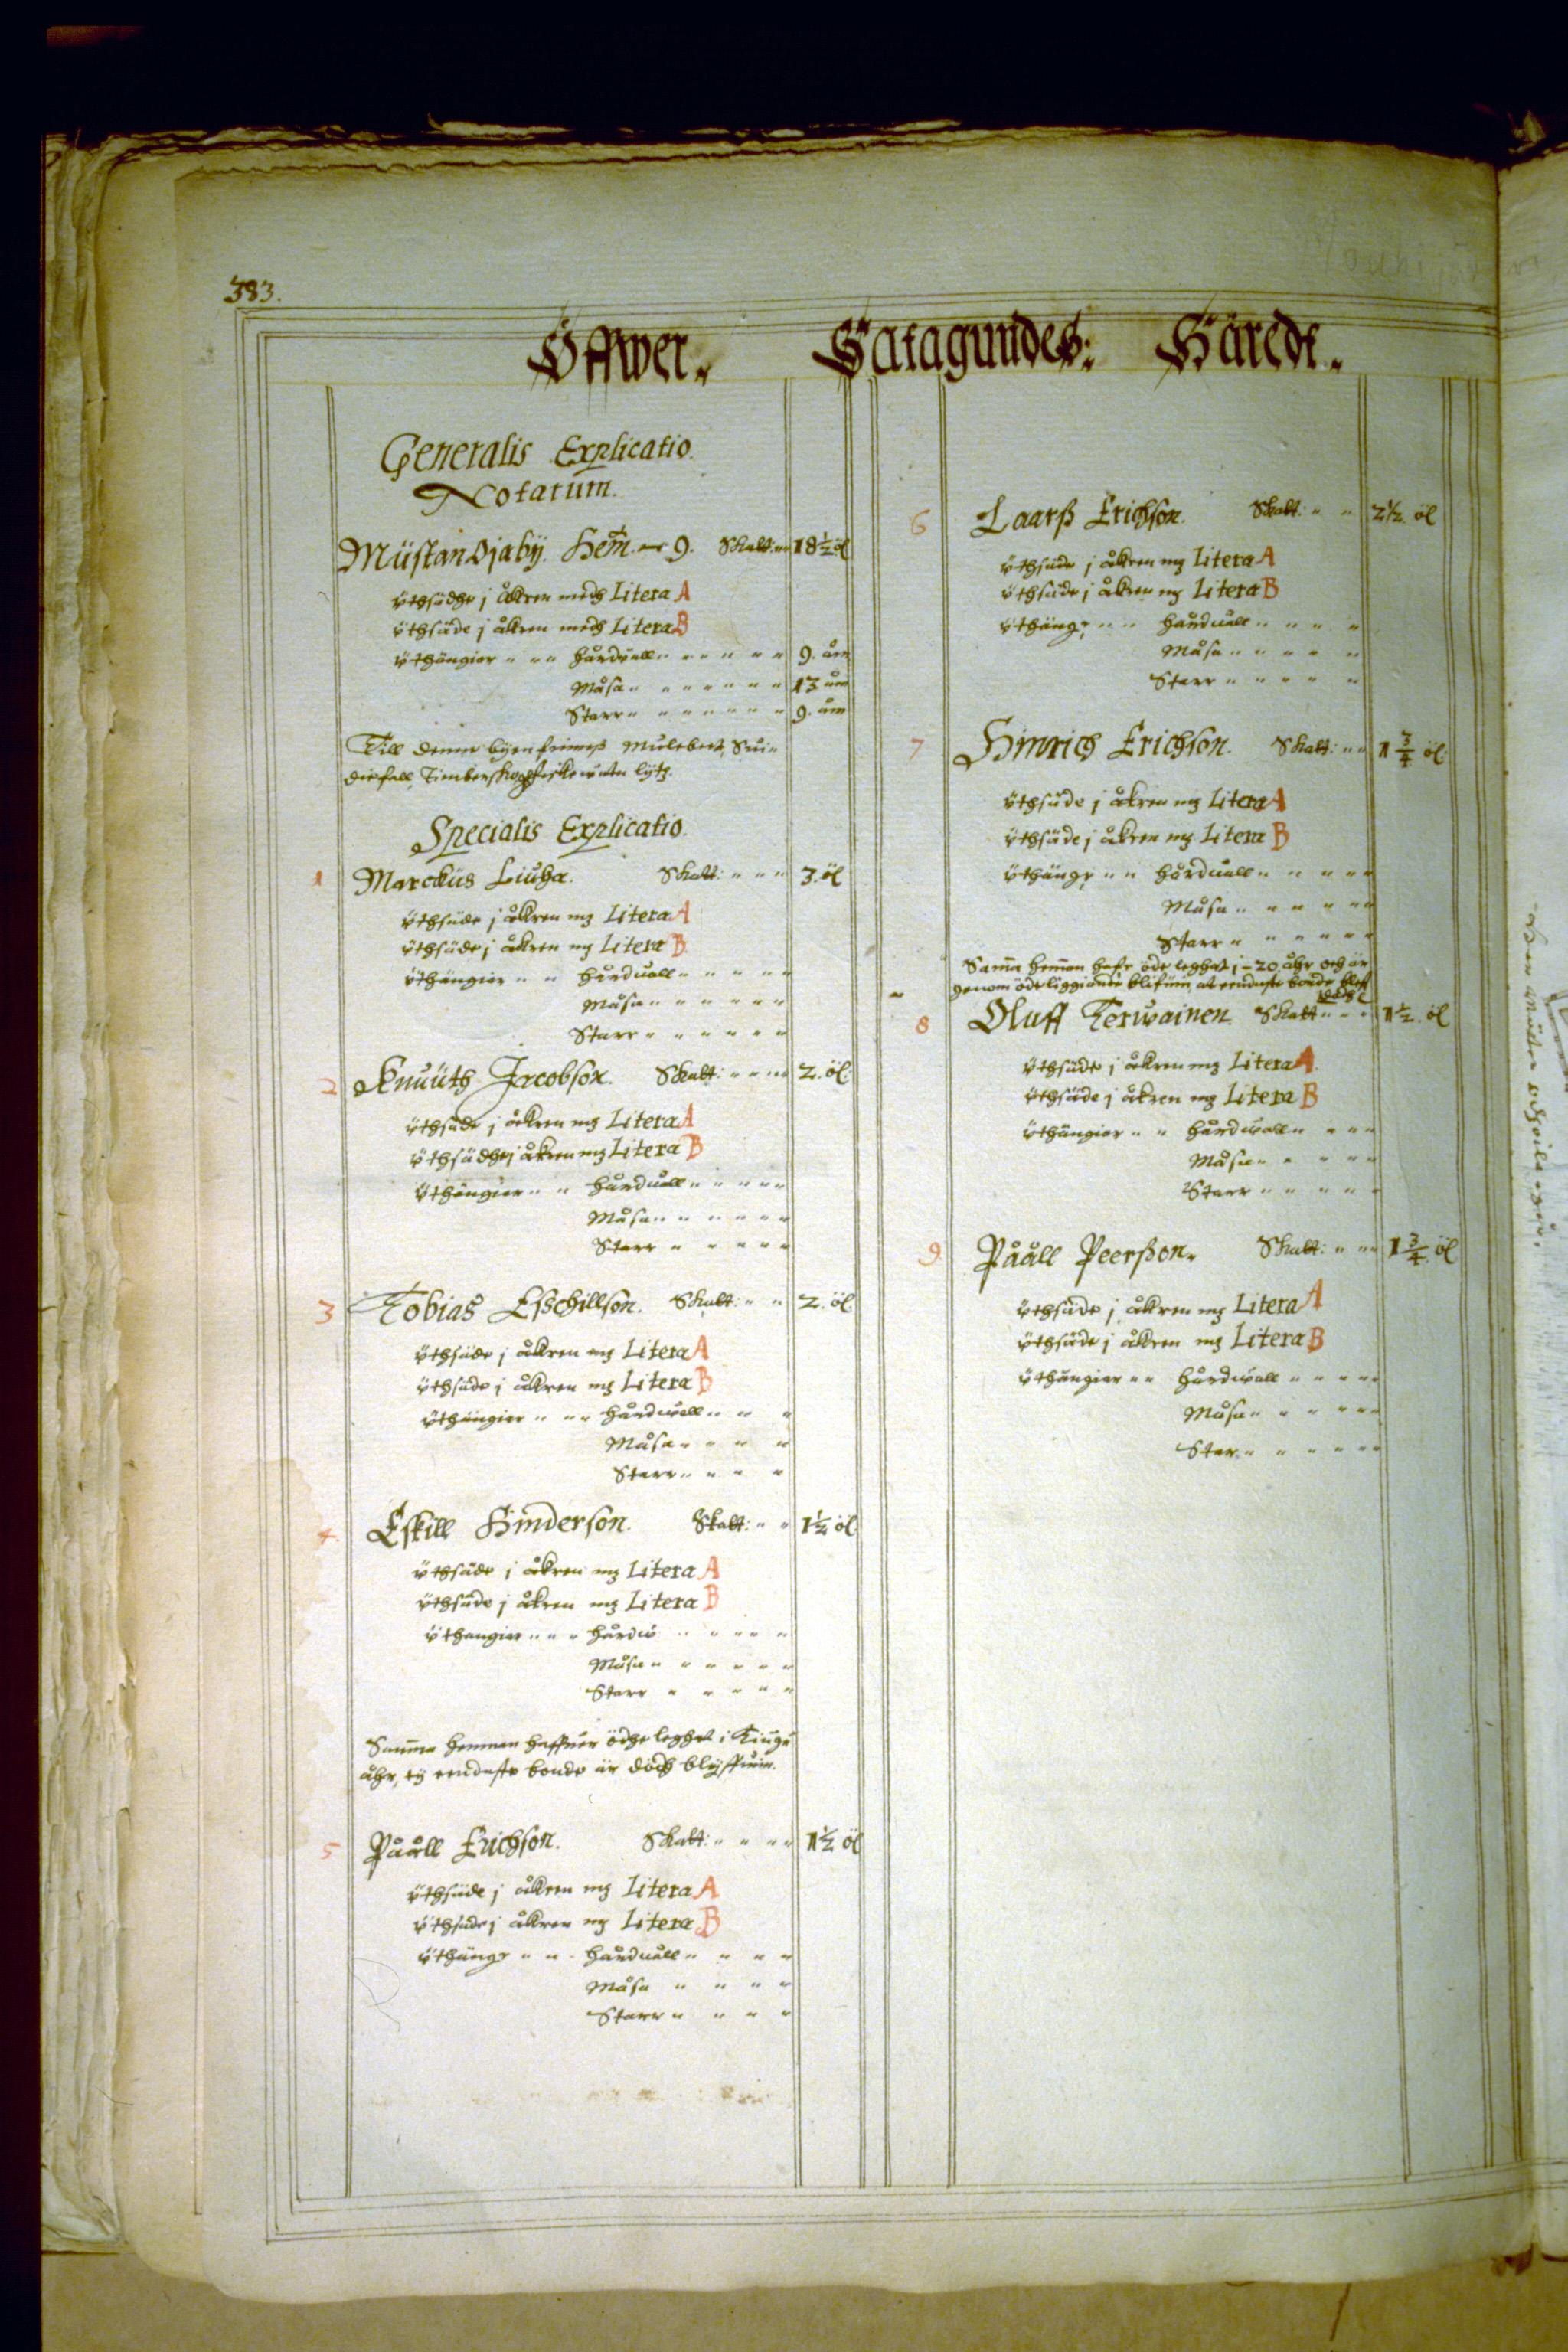 383.
Öffwer. Satagundes: Häredt.
Generalis Explicatio.
Notarum.
Müstan Ojabÿ. Hem̃. 9. Skatt: 18½ öl
Vthsädhe j åkren medh Litera A
Vthsäde j åkren medh Litera B
Vthängier hårdvall 9. åm
Måsa 13 åm
Starr 9. åm
Till denne byen finnes Mulebeet, Sui-
diefall, Timberskogh fiskevatn lÿtz.
Specialis Explicatio.
1 Marckus Liuha. Skatt: 3. öl
Vthsäde j åkren mz Litera A
Vthsäde j åkren mz Litera B
Vthängier hårdvall
Måsa
Starr
2 Knuüth Jacobson. Skatt: 2. öl
Vthsäde j åkren mz Litera A
Vthsädhe j åkren mz Litera B
Vthängier hårdvall
Måsa
Starr
3 Tobias Esschillson. Skatt: 2. öl
Vthsäde j åkren mz Litera A
Vthsäde j åkren mz Litera B
Vthängier hårdwall
Måsa
Starr
4. Eskill Hinderson. Skatt: 1½ öl
Vthsäde j åkren mz Litera A
Vthsäde j åkren mz Litera B
Vthängier hårdw
Måsa
Starr
Samma hemman haffuer ödhe leghat i Tiuge
åhr, ty eendaste bonde är dödh blyffuin.
5 Pååll Erichson. Skatt: 1½ öl
Vthsäde j åkren mz Litera A
Vthsäde j åkren mz Litera B
Vthänge hårdvall
Måsa
Starr
6 Laarß Erichson. Skatt: 2½. öl
Vthsäde j åkren mz Litera A
Vthsäde j åkren mz Litera B
Vthäng: hårdvall
Måsa
Starr
7 Hinrich Erichson. Skatt: 1¾ öl
Vthsäde j åkren mz Litera A
Vthsäde j åkren mz Litera B
Vthäng: hårdvall
Måsa
Starr
Sam̃a hem̃an hafr öde leghat j 20 åhr och är
genom ödeliggiande blifuin at eendaste bonde bleff
dödh
8 Oluff Terwainen Skatt 1½. öl
Vthsäde j åkren mz Litera A.
Vthsäde j åkren mz Litera B
Vthängier hårdwall
Måsa
Starr
9. Pååll Peerßon. Skatt: 1¾. öl
Vthsäde j åkren mz Litera A
Vthsäde j åkren mz Litera B
Vthängier hårdwall
Måsa
Star